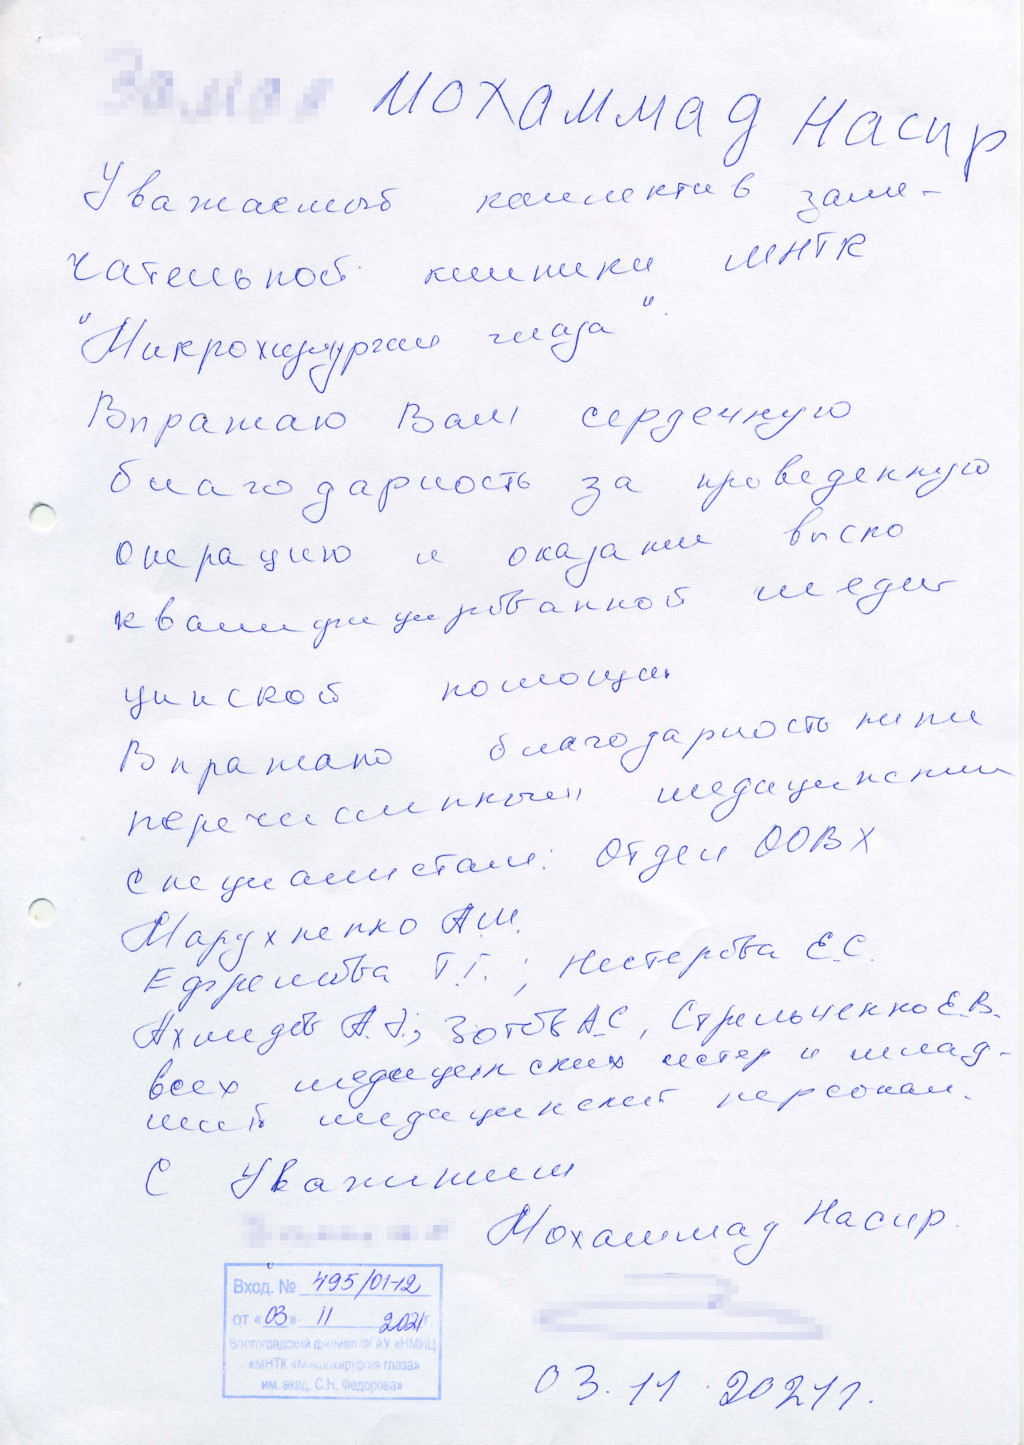 Мохаммад Насир
Уважаемый коллектив заме-
чательной клиники МНТК
"Микрохирургии глаза".
Выражаю Вам сердечную
благодарность за проведенную
операцию и оказании выско
квалифицированной меди
цинской помощи.
Выражаю благодарность ниже
перечисленным медицинским
специалистам: Отдел ООВХ
Марухненко А.М.
Ефремова Т.Г.; Нестерова Е.С.
Ахмедов А.А.; Зотов А.С, Стрельченко Е.В.
всех медицинских сестер и млад-
ший медицинский персонал.
С Уважением
Мохаммад Насир.
Вход. № 495/01-12
от «03» 11 2021г.
Волгоградский филиал ФГАУ «НМИЦ
«МНТК «Микрохирургия глаза»
им. акад. С.Н. Федорова»
03.11.2021г.